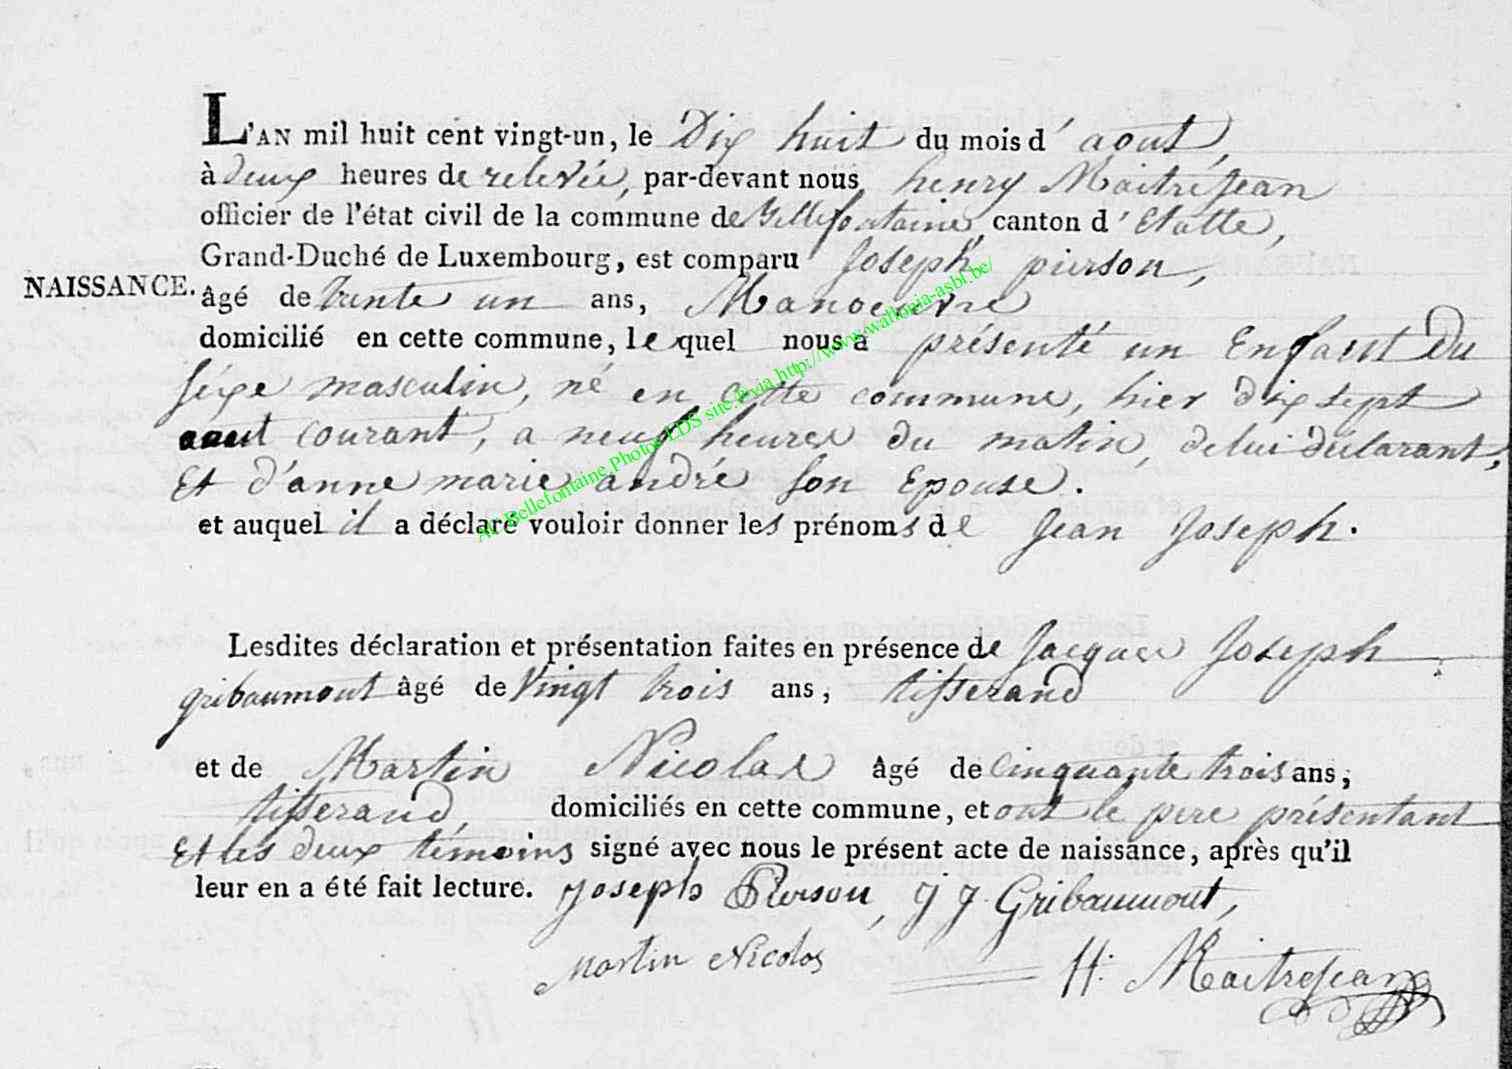 L'AN mil huit cent vingt-un, le Dix huit du mois d'aout,
à deux heures de relevée, par-devant nous henry Maitrejean
officier de l'état civil de la commune de Bellefontaine, canton d'Etalle,
Grand-Duché de Luxembourg, est comparu Joseph pierson,
NAISSANCE.
âgé de trente un ans, Manoeuvre
domicilié en cette commune, le quel nous a présenté un Enfant Du
séxe masculin, né en cette commune, hier dix sept
aout courant, a neuf heures du matin, de lui déclarant,
Et d'anne marie andré son Epouse.
et auquel il a déclaré vouloir donner les prénoms de Jean Joseph.
Lesdites déclaration et présentation faites en présence de Jacques Joseph
gribaumont âgé de Vingt trois ans, tisserand
et de Martin Nicolas âgé de Cinquante trois ans,
tisserand, domiciliés en cette commune, et ont le pere présentant
Et les deux témoins signé avec nous le présent acte de naissance, après qu'il
leur en a été fait lecture. Joseph Pierson, J J. Gribaumont,
martin Nicolas H. Maitrejean
Ac Bellefontaine Photos LDS suc @via http://www.wallonia-asbl.be/